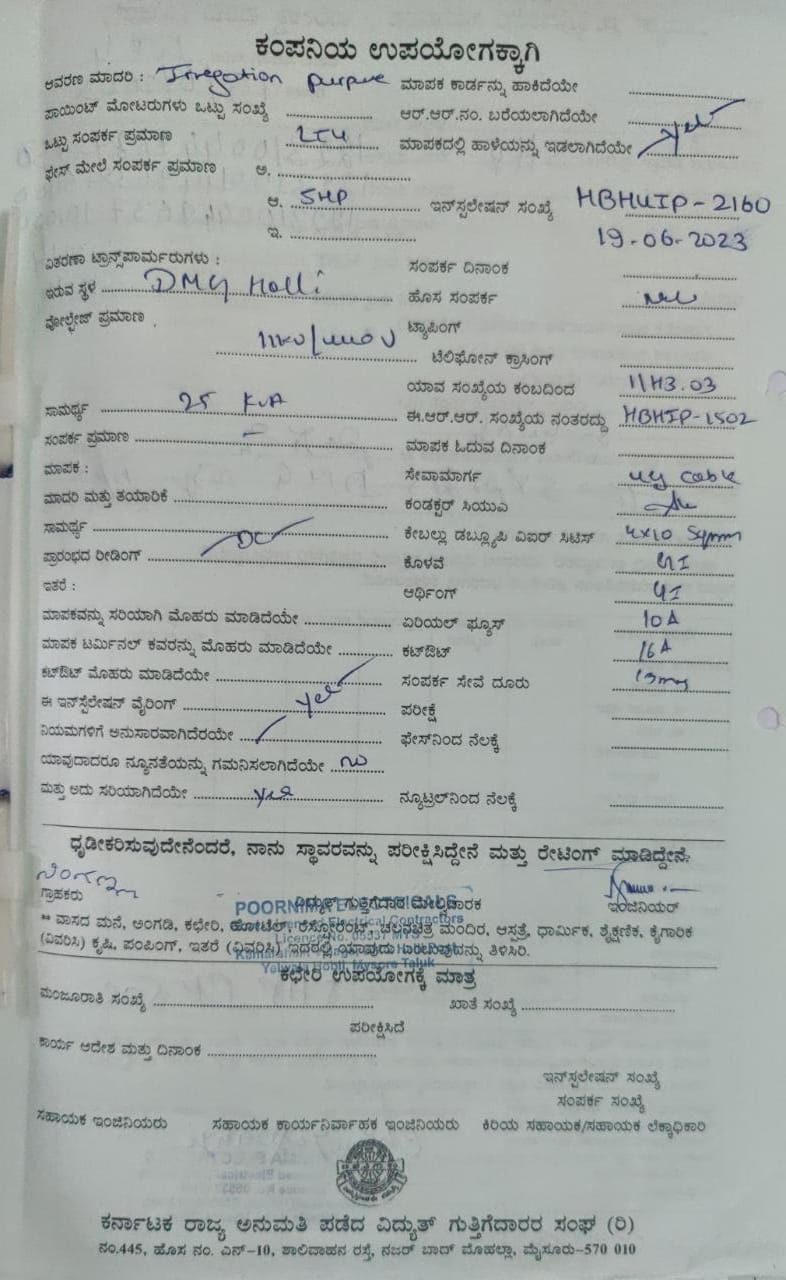 ಕಂಪನಿಯ ಉಪಯೋಗಕ್ಕಾಗಿ
ಆವರಣ ಮಾದರಿ : Irregation purpue ಮಾಪಕ ಕಾರ್ಡನ್ನು ಹಾಕಿದೆಯೇ
ಪಾಯಿಂಟ್ ಮೋಟರುಗಳು ಒಟ್ಟು ಸಂಖ್ಯೆ ಆರ್.ಆರ್.ನಂ. ಬರೆಯಲಾಗಿದೆಯೇ
ಒಟ್ಟು ಸಂಪರ್ಕ ಪ್ರಮಾಣ ಮಾಪಕದಲ್ಲಿ ಹಾಳೆಯನ್ನು ಇಡಲಾಗಿದೆಯೇ yes
ಫೇಸ್ ಮೇಲೆ ಸಂಪರ್ಕ ಪ್ರಮಾಣ ಅ.
ಆ. 5HP ಇನ್‌ಸ್ಟಲೇಷನ್ ಸಂಖ್ಯೆ HBHUIP-2160
ಇ. 19-06-2023
ವಿತರಣಾ ಟ್ರಾನ್ಸ್‌ಪಾರ್ಮರುಗಳು : ಸಂಪರ್ಕ ದಿನಾಂಕ
ಇರುವ ಸ್ಥಳ DMG Halli ಹೊಸ ಸಂಪರ್ಕ
ವೋಲ್ಟೇಜ್ ಪ್ರಮಾಣ 11KV/ ಟ್ಯಾಪಿಂಗ್
ಟೆಲಿಫೋನ್ ಕ್ರಾಸಿಂಗ್
ಯಾವ ಸಂಖ್ಯೆಯ ಕಂಬದಿಂದ 11H3.03
ಸಾಮರ್ಥ್ಯ 25 KVA ಈ.ಆರ್.ಆರ್. ಸಂಖ್ಯೆಯ ನಂತರದ್ದು HBHIP-1502
ಸಂಪರ್ಕ ಪ್ರಮಾಣ – ಮಾಪಕ ಓದುವ ದಿನಾಂಕ
ಮಾಪಕ : ಸೇವಾಮಾರ್ಗ UG cable
ಮಾದರಿ ಮತ್ತು ತಯಾರಿಕೆ ಕಂಡಕ್ಟರ್ ಸಿಯುಎ
ಸಾಮರ್ಥ್ಯ ಕೇಬಲ್ಲು ಡಬ್ಲ್ಯೂಪಿ ವಿಐರ್ ಸಿಟಿಸ್ 4x10 Sqmm
ಪ್ರಾರಂಭದ ರೀಡಿಂಗ್ DC ಕೊಳವೆ GI
ಇತರೆ : ಆರ್ಥಿಂಗ್ GI
ಮಾಪಕವನ್ನು ಸರಿಯಾಗಿ ಮೊಹರು ಮಾಡಿದೆಯೇ ಏರಿಯಲ್ ಫ್ಯೂಸ್ 10A
ಮಾಪಕ ಟರ್ಮಿನಲ್ ಕವರನ್ನು ಮೊಹರು ಮಾಡಿದೆಯೇ ಕಟ್‌ಔಟ್ 16A
ಕಟ್‌ಔಟ್ ಮೊಹರು ಮಾಡಿದೆಯೇ ಸಂಪರ್ಕ ಸೇವೆ ದೂರು
ಈ ಇನ್‌ಸ್ಟಲೇಷನ್ ವೈರಿಂಗ್ yes ಪರೀಕ್ಷೆ
ನಿಯಮಗಳಿಗೆ ಅನುಸಾರವಾಗಿದೆರಯೇ ಫೇಸ್‌ನಿಂದ ನೆಲಕ್ಕೆ
ಯಾವುದಾದರೂ ನ್ಯೂನತೆಯನ್ನು ಗಮನಿಸಲಾಗಿದೆಯೇ No
ಮತ್ತು ಅದು ಸರಿಯಾಗಿದೆಯೇ yes ನ್ಯೂಟ್ರಲ್‌ನಿಂದ ನೆಲಕ್ಕೆ
ಧೃಡೀಕರಿಸುವುದೇನೆಂದರೆ, ನಾನು ಸ್ಥಾವರವನ್ನು ಪರೀಕ್ಷಿಸಿದ್ದೇನೆ ಮತ್ತು ರೇಟಿಂಗ್ ಮಾಡಿದ್ದೇನೆ.
ಗ್ರಾಹಕರು ವಿದ್ಯುತ್ ಗುತ್ತಿಗೆದಾರ ಮೇಲ್ವಿಚಾರಕ ಇಂಜಿನಿಯರ್
POORNIMA ELECTRICALS
Electrical Contractors
Licence No.
Yelwala Hobli, Mysore Taluk
** ವಾಸದ ಮನೆ, ಅಂಗಡಿ, ಕಛೇರಿ, ಹೋಟೆಲ್, ರೆಸ್ಟೋರೆಂಟ್, ಚಲನಚಿತ್ರ ಮಂದಿರ, ಆಸ್ಪತ್ರೆ, ಧಾರ್ಮಿಕ, ಶೈಕ್ಷಣಿಕ, ಕೈಗಾರಿಕ
(ವಿವರಿಸಿ) ಕೃಷಿ, ಪಂಪಿಂಗ್, ಇತರೆ (ವಿವರಿಸಿ) ಇದರಲ್ಲಿ ಯಾವುದು ಎಂಬುವುದನ್ನು ತಿಳಿಸಿರಿ.
ಕಛೇರಿ ಉಪಯೋಗಕ್ಕೆ ಮಾತ್ರ
ಮಂಜೂರಾತಿ ಸಂಖ್ಯೆ ಖಾತೆ ಸಂಖ್ಯೆ
ಪರೀಕ್ಷಿಸಿದೆ
ಕಾರ್ಯ ಆದೇಶ ಮತ್ತು ದಿನಾಂಕ
ಇನ್‌ಸ್ಟಲೇಷನ್ ಸಂಖ್ಯೆ
ಸಂಪರ್ಕ ಸಂಖ್ಯೆ
ಸಹಾಯಕ ಇಂಜಿನಿಯರು ಸಹಾಯಕ ಕಾರ್ಯನಿರ್ವಾಹಕ ಇಂಜಿನಿಯರು ಕಿರಿಯ ಸಹಾಯಕ/ಸಹಾಯಕ ಲೆಕ್ಕಾಧಿಕಾರಿ
ಕರ್ನಾಟಕ ರಾಜ್ಯ ಅನುಮತಿ ಪಡೆದ ವಿದ್ಯುತ್ ಗುತ್ತಿಗೆದಾರರ ಸಂಘ (ರಿ)
ನಂ.445, ಹೊಸ ನಂ. ಎನ್-10, ಶಾಲಿವಾಹನ ರಸ್ತೆ, ನಜರ್ ಬಾದ್ ಮೊಹಲ್ಲಾ, ಮೈಸೂರು-570 010